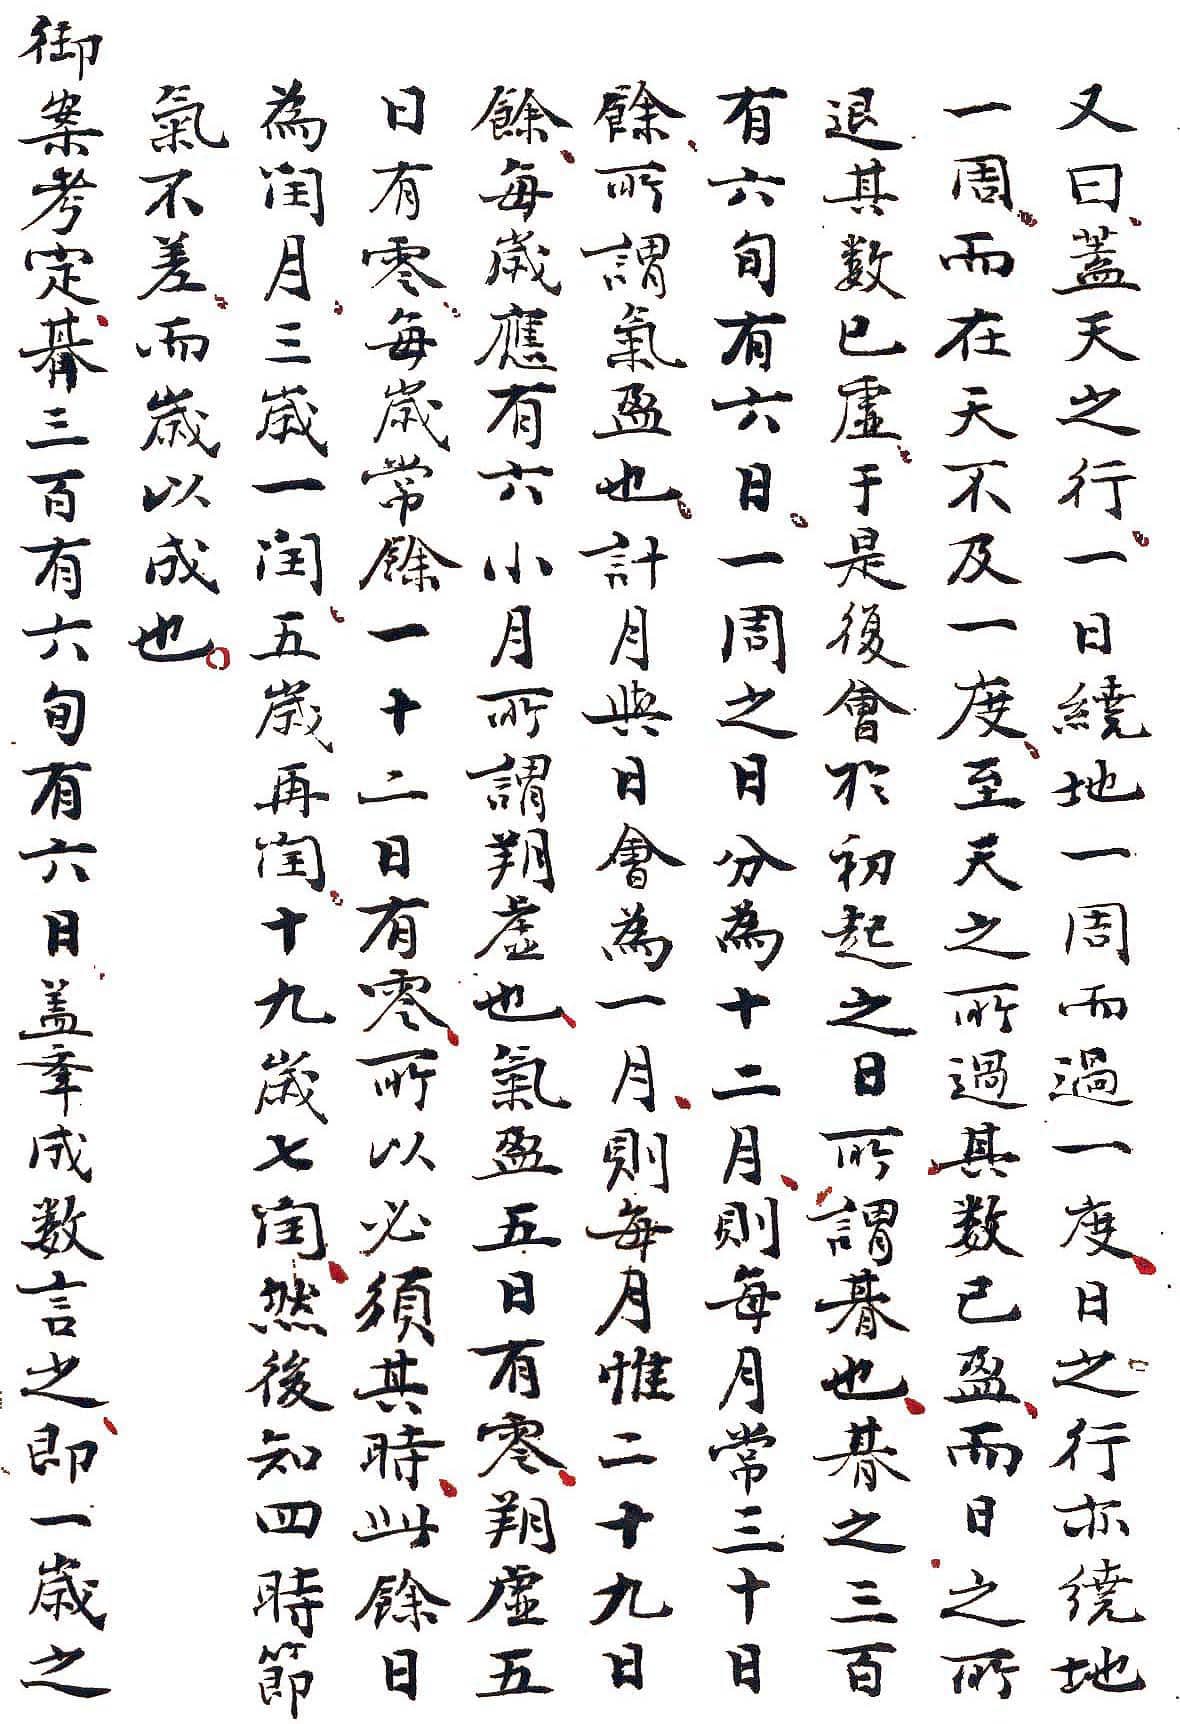 又曰蓋天之行一日繞地一周而過一度日之行亦繞地
一周而在天不及一度至天之所過其数已盈而日之所
退其數已虛于是復會於初起之日所謂朞也朞之三百
有六旬有六日一周之日分為十二月則每月常三十日
餘所謂氣盈也計月與日會為一月則每月惟二十九日
餘每歲應有六小月所謂朔虛也氣盈五日有零朔虛五
日有零每歲常餘一十二日有零所以必須其時此餘日
為閏月三歲一閏五歲再閏十九歲七閏然後知四時節
氣不差而歲以成也
御案考定朞三百有六旬有六日盖牽成数言之即一歲之